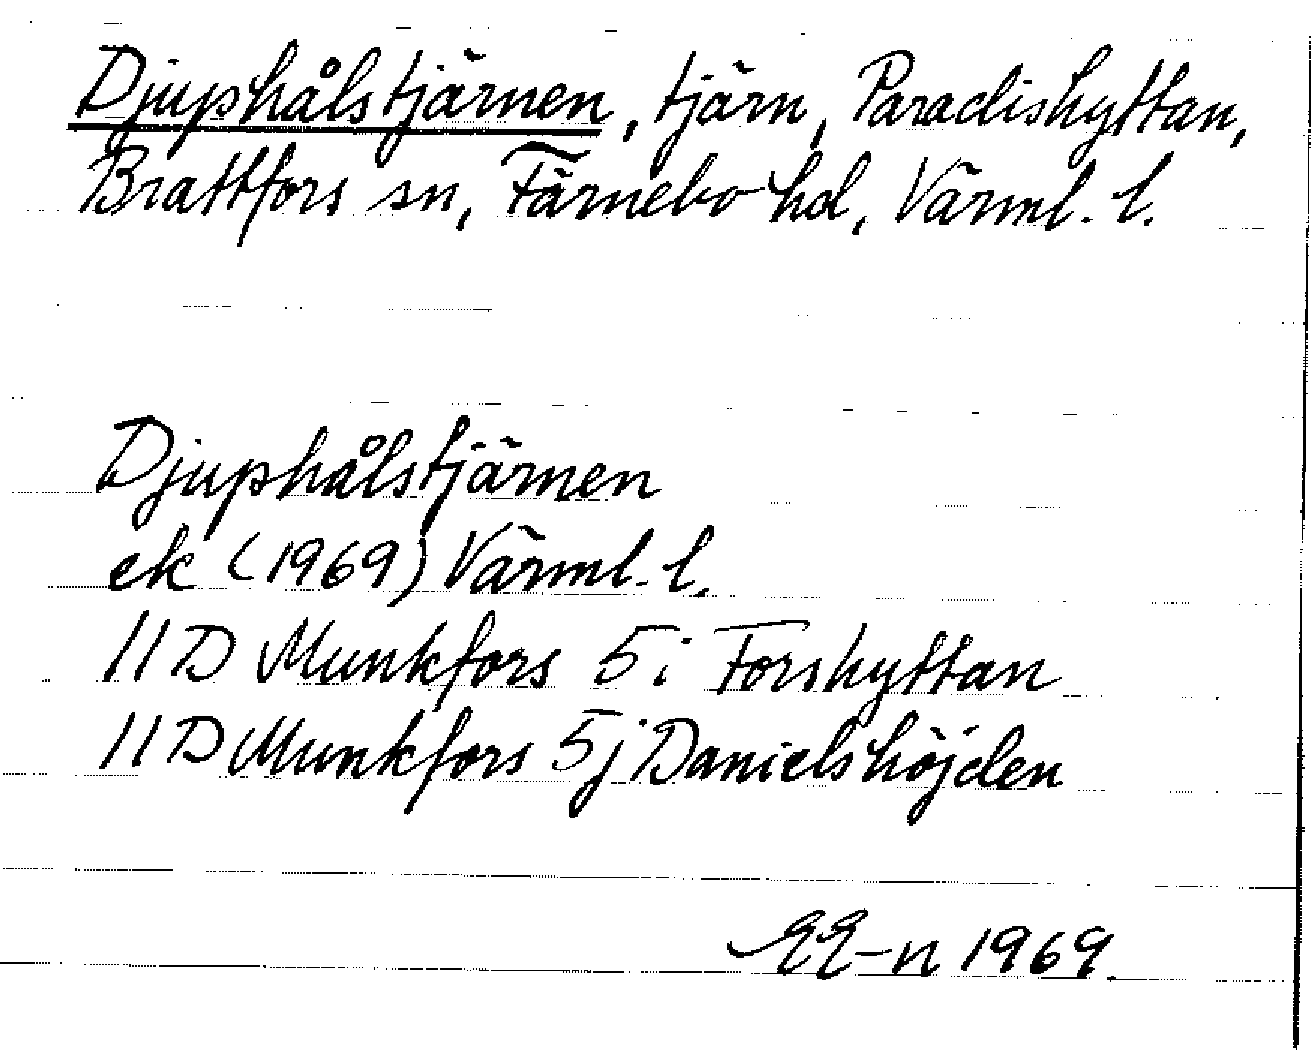 Djuphålstjärnen, tjärn, Paradishyttan,
Brattfors sn, Färnebo hd, Värml. l.
Djuphålstjärnen
ek (1969) Värml. l.
11D Munkfors 5i Forshyttan
11D Munkfors 5j Danielshöjden
EE-n 1969.